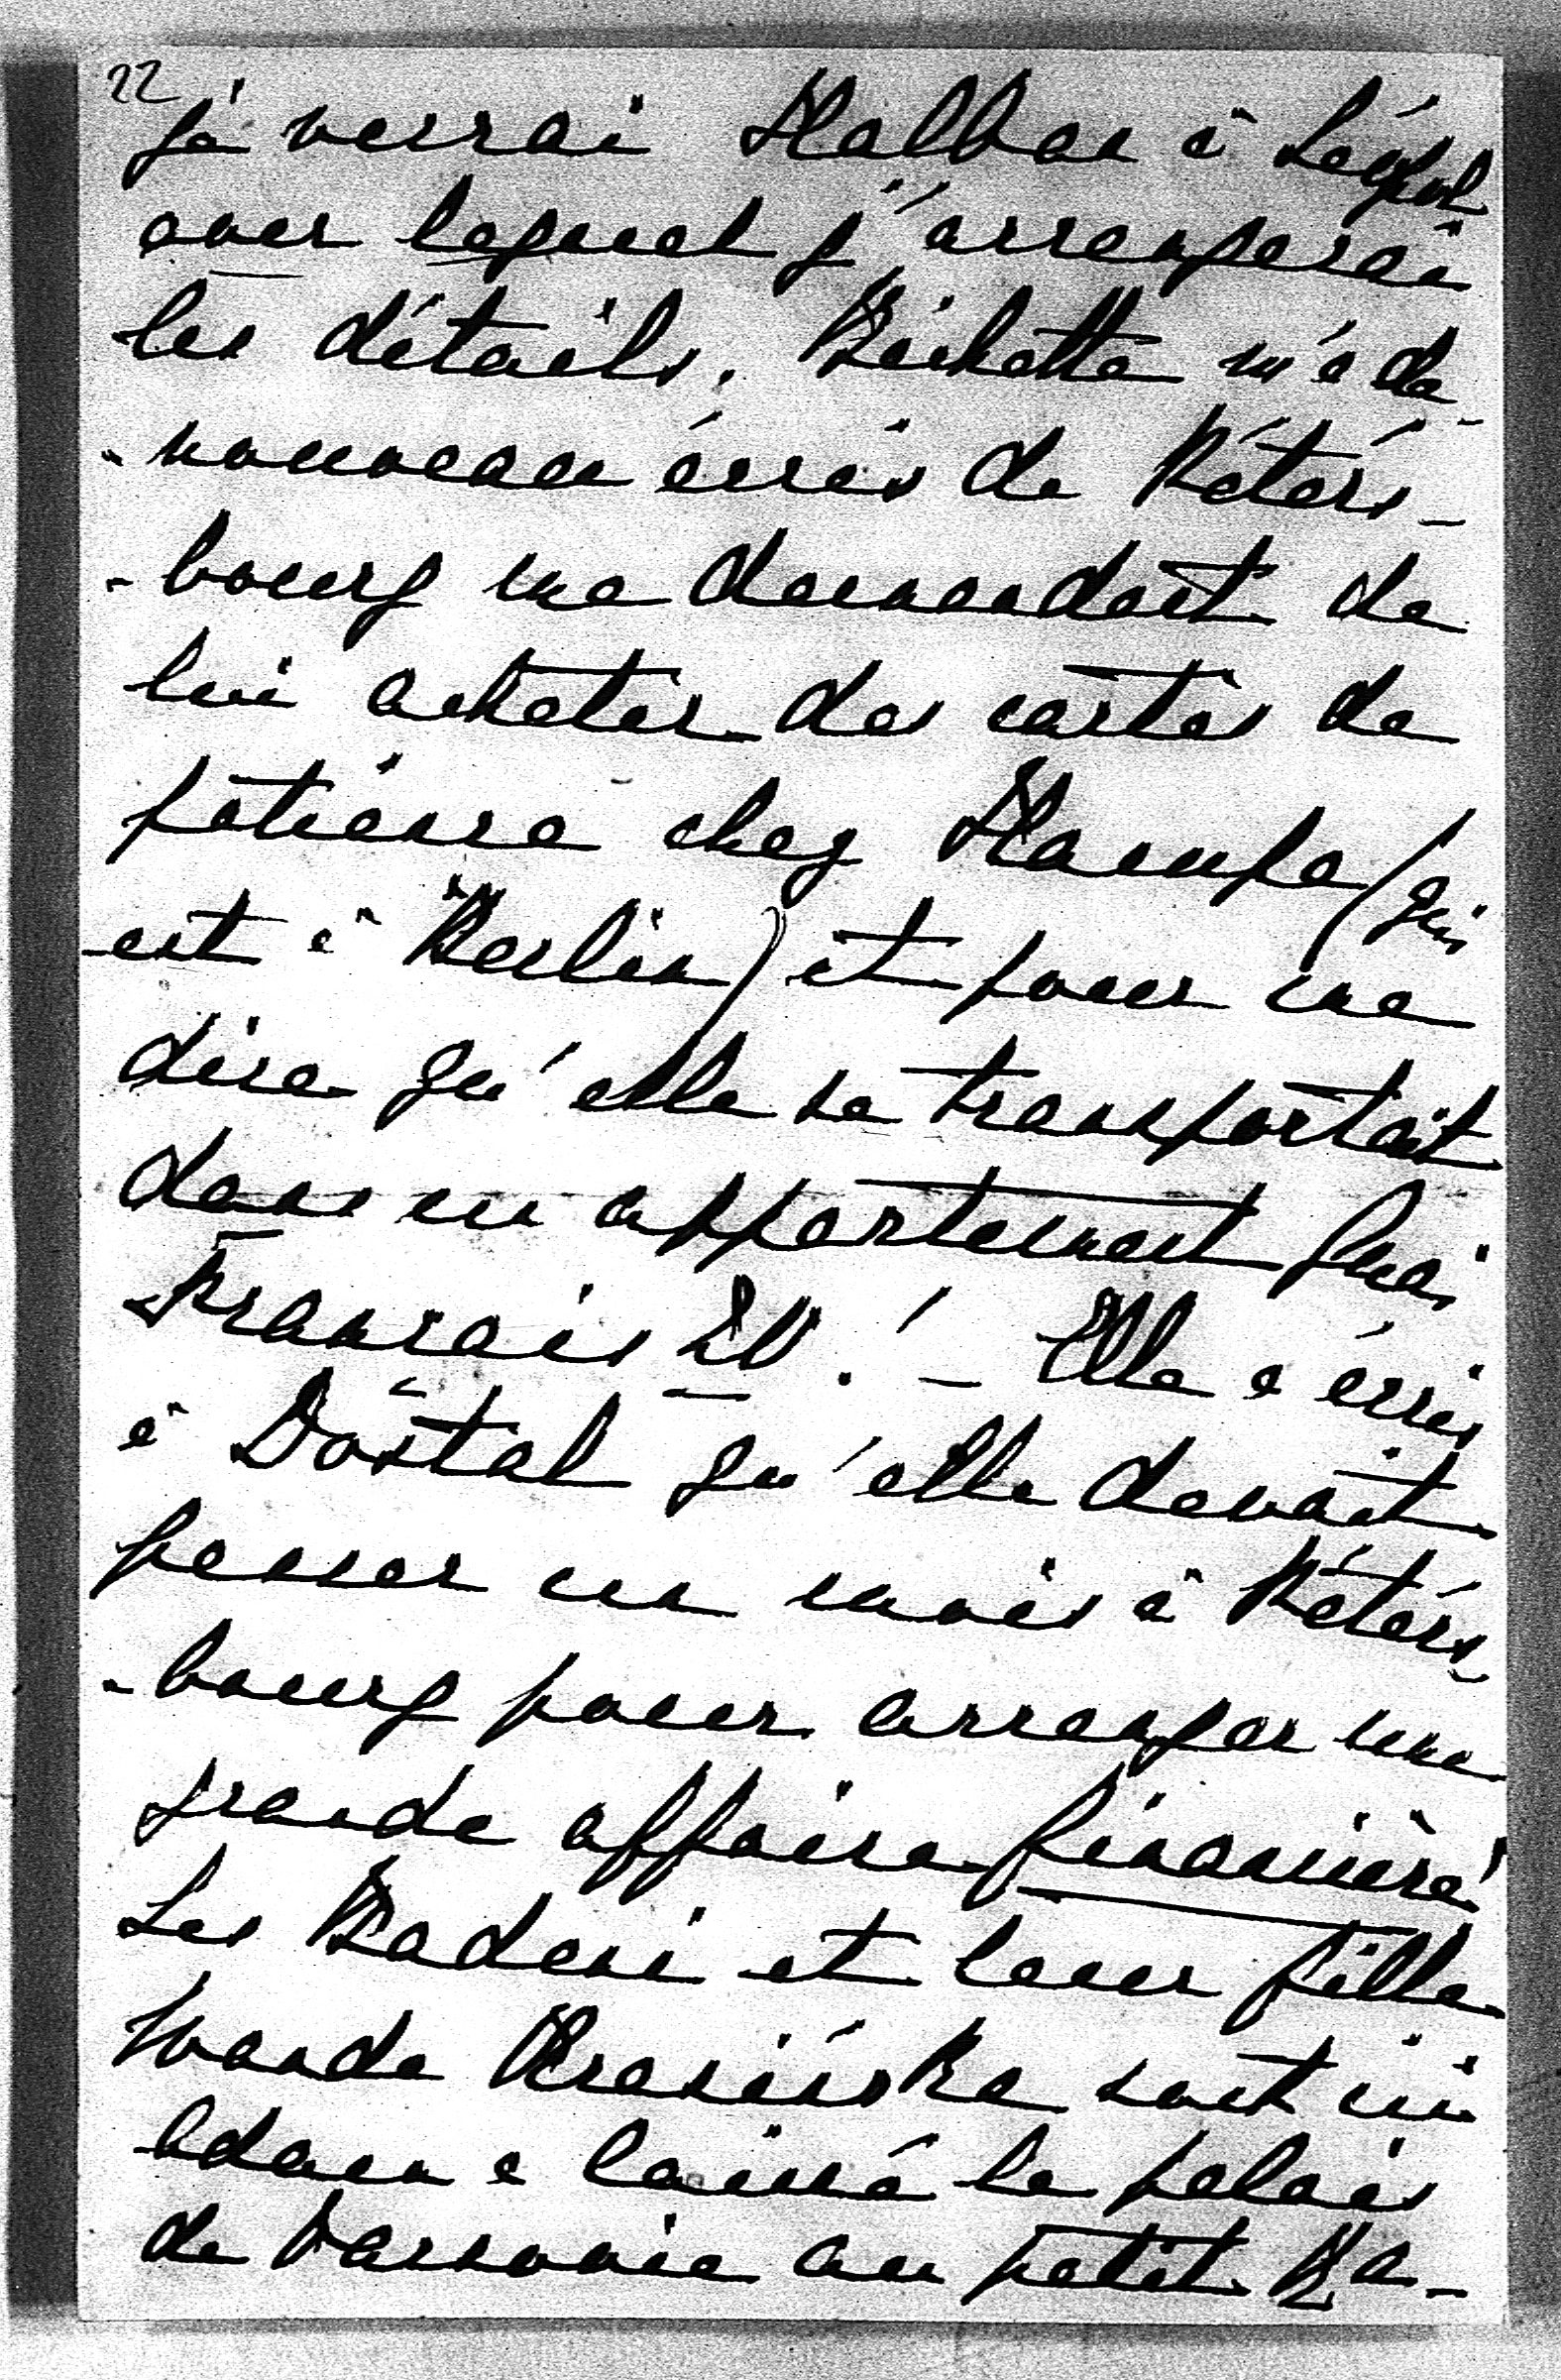 22
Je verrai Halban à Léopol
avec lequel j'arrangerai
les détails. Béchette m'a de
-nouveau écris de Péters-
-bourg me demandant de
lui acheter des cartes de
patience chez Hampe (qui
est à Berlin) et pour me
dire qu'elle se transportait
dans un appartement Quai
Français 20 ! — Elle a écris
à Dostal qu'elle devait
passer un mois à Péters-
-bourg pour arranger une
grande affaire financière!
Les Badeni et leur fille
Wanda Krasińska sont ici
Adam a laissé le palais
de Varsovie au petit Ka-